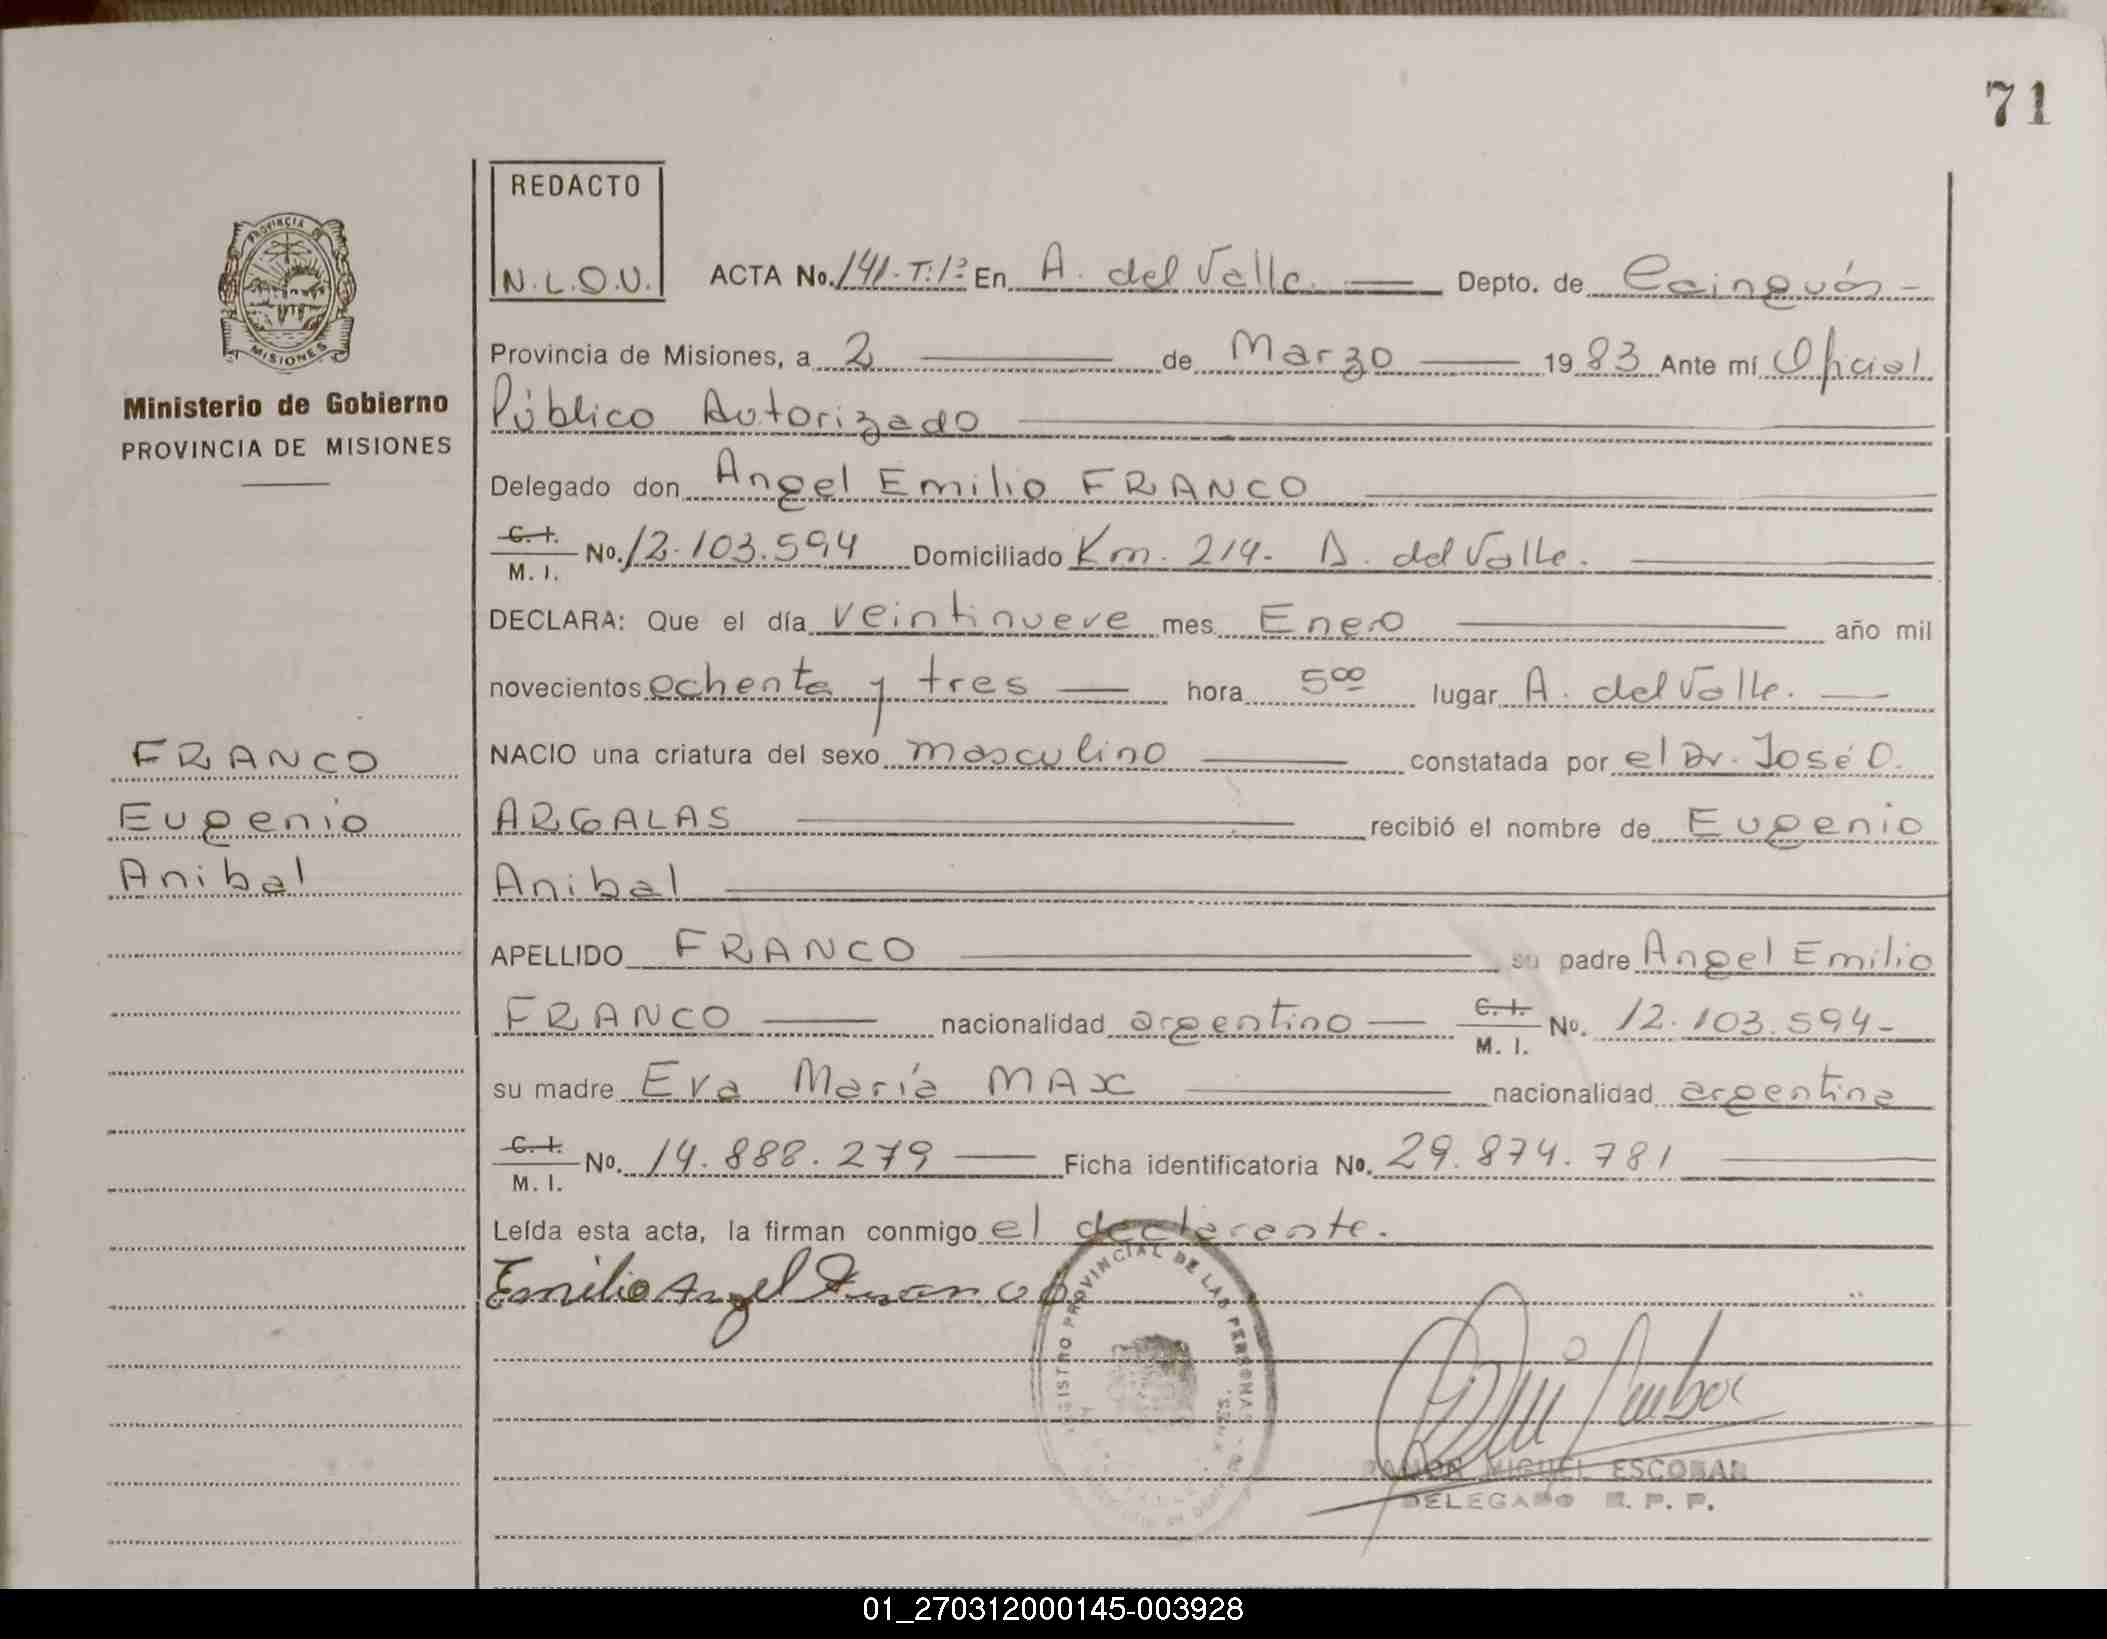 71
REDACTO
N.L.O.U.
PROVINCIA DE
MISIONES
Ministerio de Gobierno
PROVINCIA DE MISIONES
ACTA No. 141-T:1º En A. del Valle. Depto. de Cainguás -
Provincia de Misiones, a 2 de Marzo 1983 Ante mí Oficial
Público Autorizado
Delegado don Angel Emilio FRANCO
C. I.
M. I. No. 12.103.594 Domiciliado Km. 214- A. del Valle.
DECLARA: Que el día veintinueve mes Enero año mil
novecientos ochenta y tres hora 5⁰⁰ lugar A. del Valle.
NACIO una criatura del sexo masculino constatada por el Dr. José O.
ARGALAS recibió el nombre de Eugenio
Anibal
FRANCO
Eugenio
Anibal
APELLIDO FRANCO su padre Angel Emilio
FRANCO nacionalidad argentino C. I.
M. I. No. 12.103.594-
su madre Eva María MAX nacionalidad argentina
C. I.
M. I. No. 14.888.279 Ficha identificatoria No. 29.874.781
Leída esta acta, la firman conmigo el declarante.
Emilio Angel Franco
REGISTRO PROVINCIAL DE LAS PERSONAS
RAMON MIGUEL ESCOBAR
DELEGADO R. P. P.
01_270312000145-003928